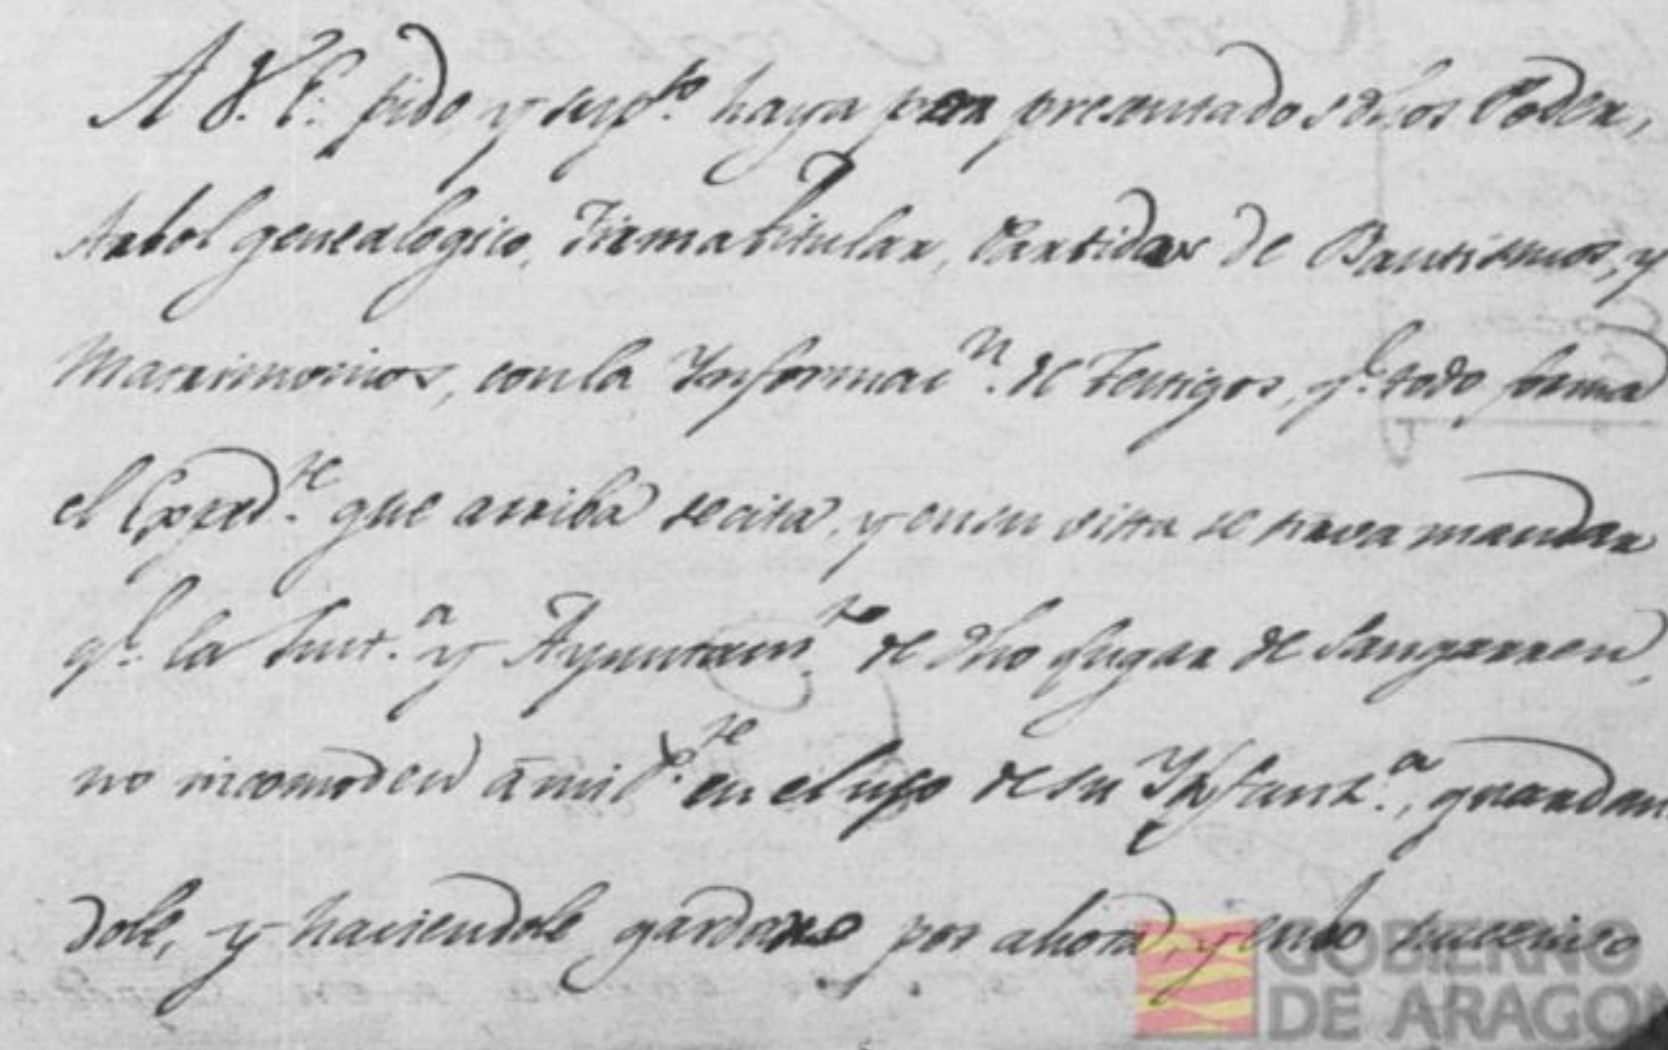 A V. E. pido, y sup.to haya por presentados dhos Poder,
Arbol genealogico, Firma titular, Partidas de Bautismos, y
Matrimonios, con la Informac.n de Testigos, q.e todo forma
el Exped.te que arriba se cita, y en su vista se sirva mandar
q.e la Just.a y Ayuntam.to de dho Lugar de Sangarren,
no incomoden à mi P.te en el uso de su Ynfanz.a, guardan
dole, y haciendole gardar por ahora, y en lo succesivo
GOBIERNO
DE ARAGON